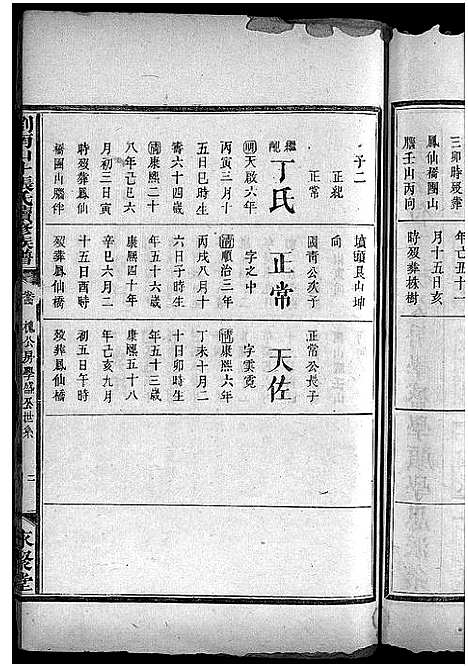 三卯時歿葬
鳳仙橋園山
膓壬山丙向
年己丑十一
月十五日亥
時歿葬株樹
子二
正紀
正常
繼配
丁氏
明天啟六年
丙寅三月十
五日巳時生
清康熙二十
八年己巳六
月初三日寅
時歿葬鳳仙
橋園山膓伴
墳頭艮山坤
向
國青公次子
正常
字之中
清順治三年
丙戌八月十
六日子時生
年五十六歲
康熙四十年
辛巳六月二
十五日酉時
歿葬鳳仙橋
正常公長子
天佐
字雲霓
清康熙六年
丁未十月二
十日卯時生
年五十三歲
康熙五十八
年己亥九月
初五日午時
歿葬鳳仙橋
張氏續修族譜
公房學盛公世系
二
永發堂